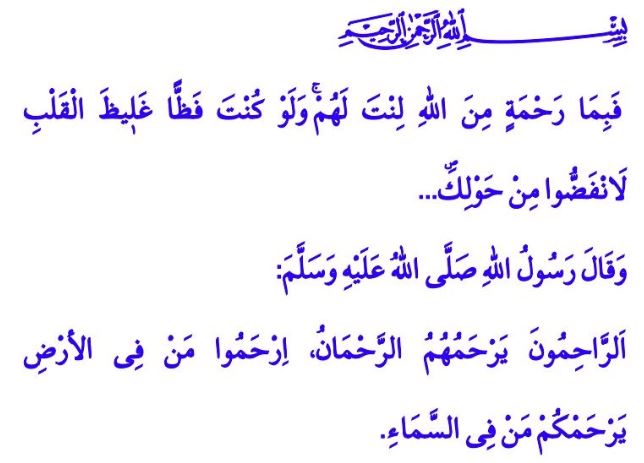 بِسْمِ اللهِ الرَّحْمٰنِ الرَّحِيمِ
فَبِمَا رَحْمَةٍ مِنَ اللهِ لِنْتَ لَهُمْۚ وَلَوْ كُنْتَ فَظًّا غَلٖيظَ الْقَلْبِ
لَانْفَضُّوا مِنْ حَوْلِكَۖ...
وَقَالَ رَسُولُ اللهِ صَلَّى اللهُ عَلَيْهِ وَسَلَّمَ:
اَلرَّاحِمُونَ يَرْحَمُهُمُ الرَّحْمَانُ، اِرْحَمُوا مَنْ فِى الأَرْضِ
يَرْحَمْكُمْ مَنْ فِى السَّمَاءِ.